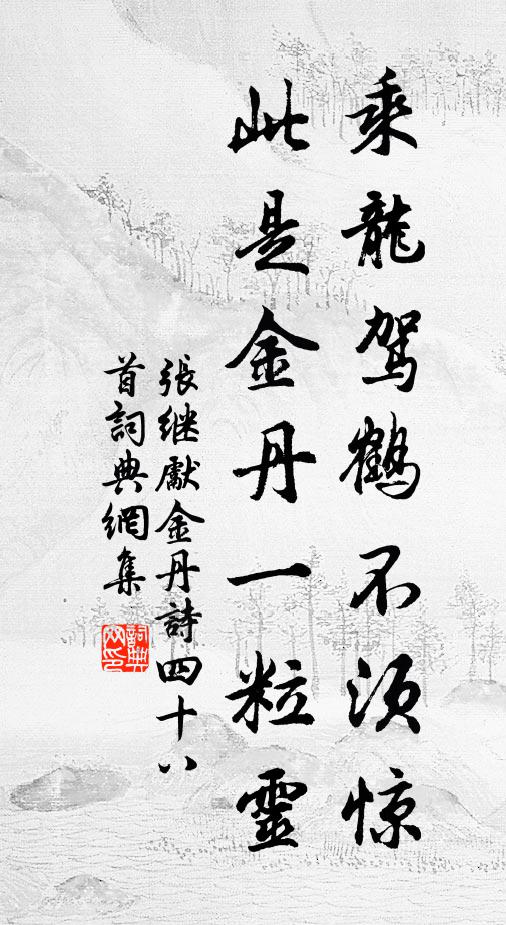 乘龍駕鶴不须惊
此是金丹一粒靈
張继獻金丹詩四十八
首詞典網集
詞典
网印